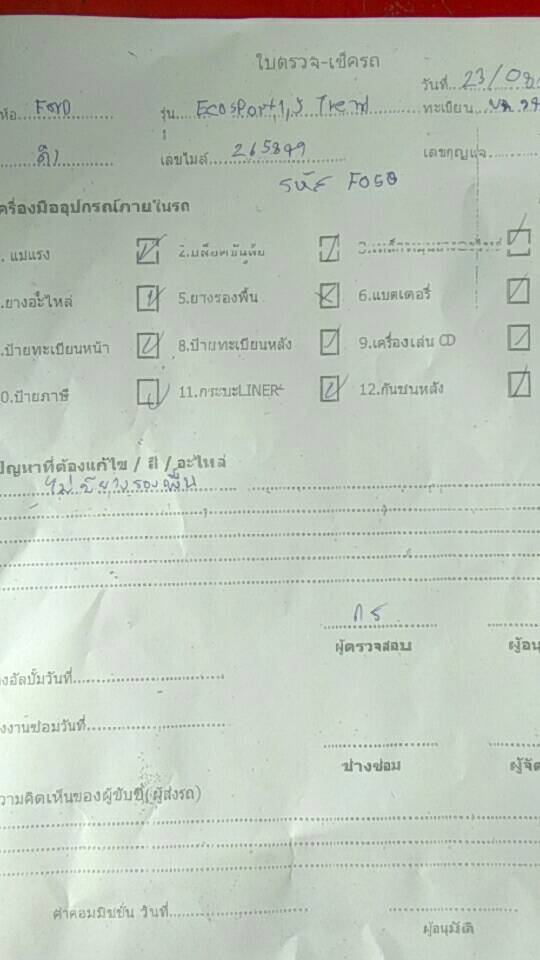 ใบตรวจ-เช็ครถ
วันที่ 23/08/
ห้อ FORD รุ่น Ecosport 1,5 Trend ทะเบียน
เลขไมล์ 265849 เลขกุญแจ
รหัส F050
ครื่องมืออุปกรณ์ภายในรถ
. แม่แรง 2.บล็อคขันล้อ
.ยางอะไหล่ 5.ยางรองพื้น 6.แบตเตอรี่
.ป้ายทะเบียนหน้า 8.ป้ายทะเบียนหลัง 9.เครื่องเล่น CD
0.ป้ายภาษี 11.กระบะLINER 12.กันชนหลัง
ปัญหาที่ต้องแก้ไข / สี / อะไหล่
ไม่มียางรองพื้น
ผู้ตรวจสอบ ผู้อนุ
งอัลบั้มวันที่
งงานซ่อมวันที่
ช่างซ่อม ผู้จั
วามคิดเห็นของผู้ขับขี่(ผู้ส่งรถ)
ค่าคอมมิชชั่น วันที่
ผู้อนุมัติ